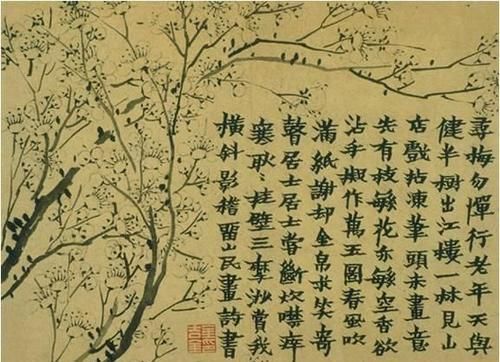 尋梅勿憚行老年天與
健半樹出江樓一林見山
店戲拈凍筆頭未畫意
先有枝繁花亦繁空香欲
沾手擬作萬玉圖春風吹
滿紙謝却金帛求笑寄
瞽居士居士嘗斷炊噤痒
襄耿〻挂壁三摩挲賞我
橫斜影稽留山民畫詩書